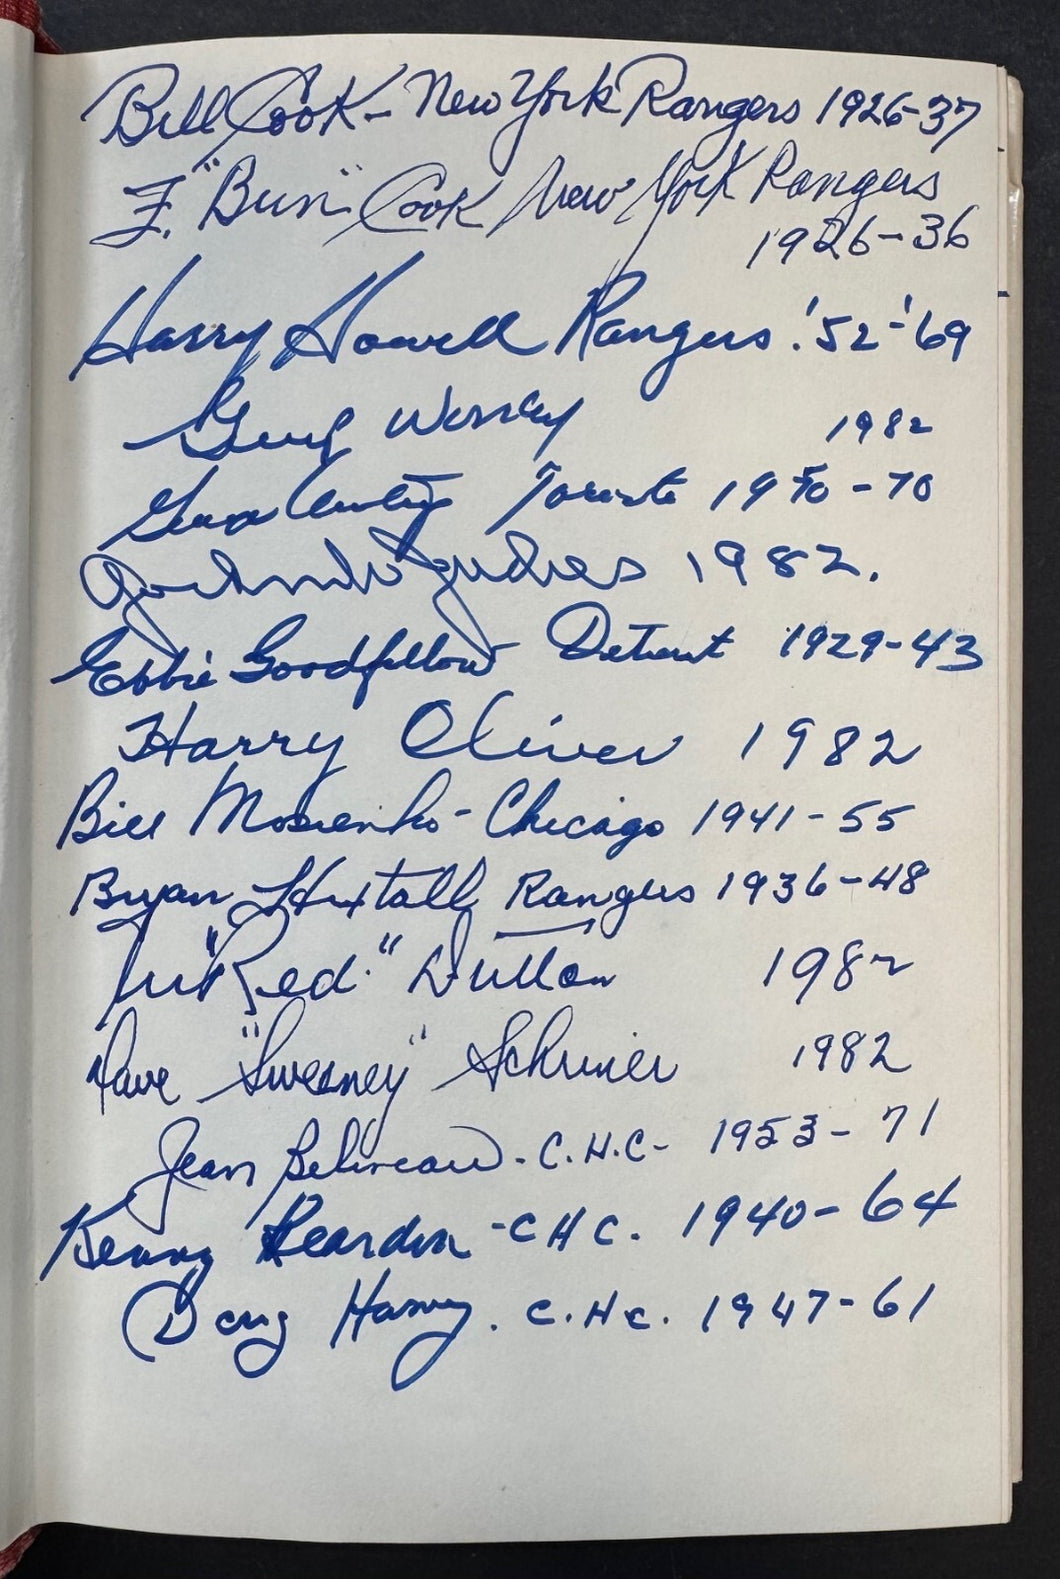 Bill Cook - New York Rangers 1926-37
F. "Bun" Cook New York Rangers
1926-36
Harry Howell Rangers. '52-'69
Gump Worsley 1982
Toronto 1950-70
1982.
Ebbie Goodfellow Detroit 1929-43
Harry Oliver 1982
Bill Mosienko - Chicago 1941-55
Bryan Hextall Rangers 1936-48
"Red" Dutton 1982
Dave "Sweeney" Schriner 1982
Jean Beliveau - C.H.C - 1953-71
Kenny Reardon - C H C. 1940-64
Doug Harvey. C.H.C. 1947-61